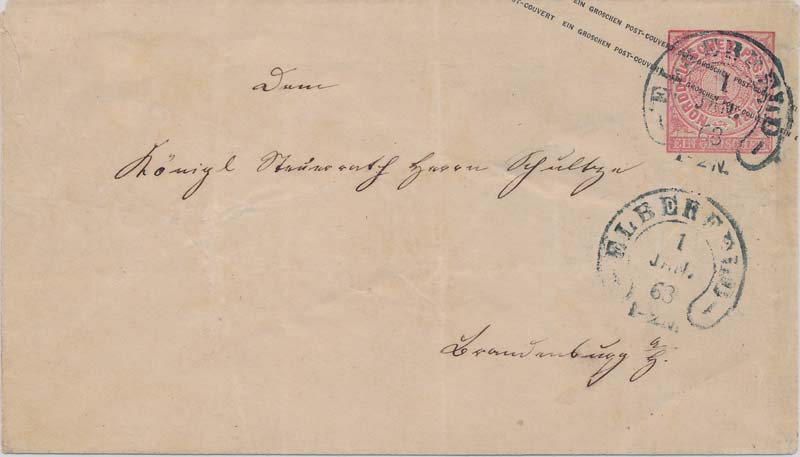 EIN GROSCHEN POST-COUVERT EIN GROSCHEN POST-COUVERT
POST-COUVERT EIN GROSCHEN POST-COUVERT
EIN GROSCHEN
ELBERFELD
1
JAN.
63
1-2N.
Dem
Königl Steuerrath Herrn Schultze
ELBERFELD
1
JAN.
63
1-2N.
Brandenburg a/H.